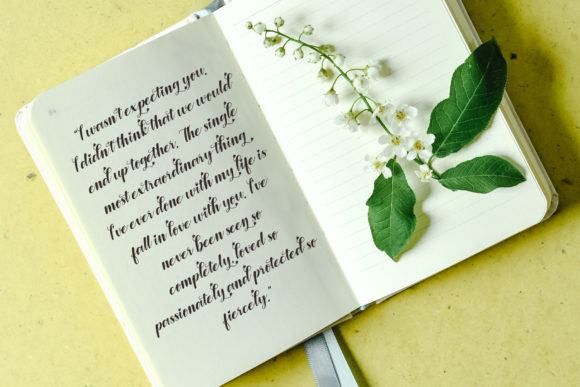 "I wasn't expecting you.
I didn't think that we would
end up together. The single
most extraordinary thing
I've ever done with my life is
fall in love with you. I've
never been seen so
completely, loved so
passionately and protected so
fiercely."